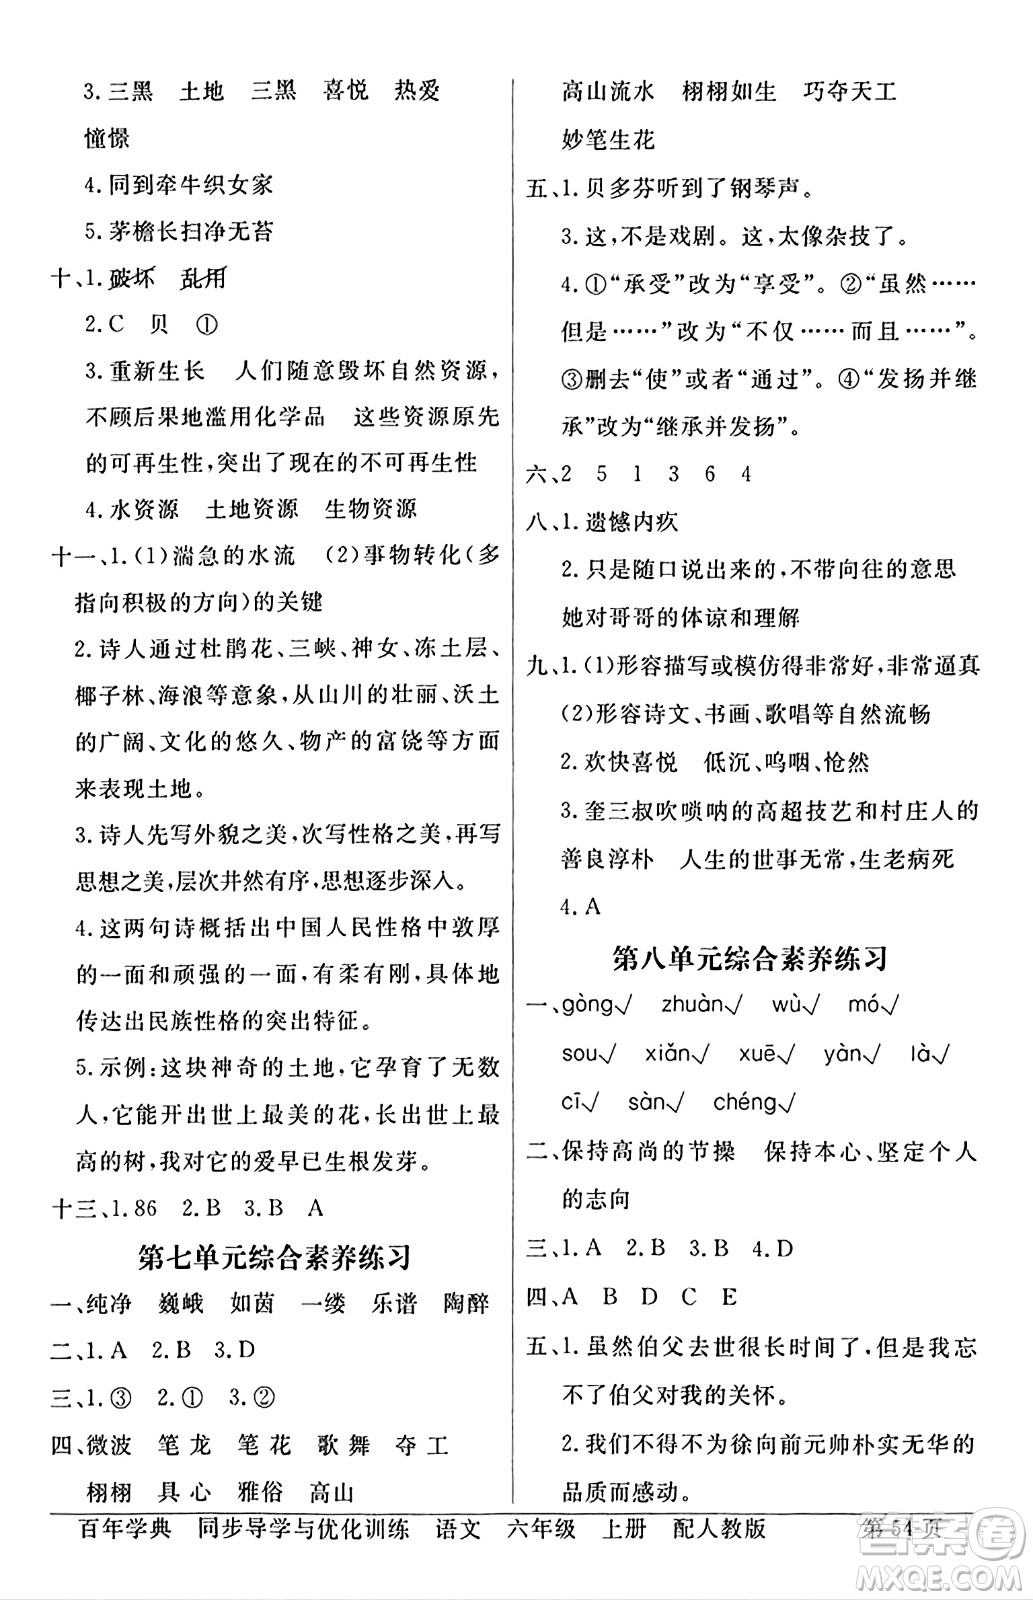 3.三黑　土地　三黑　喜悦　热爱
憧憬
4.同到牵牛织女家
5.茅檐长扫净无苔
十、1.破坏　乱用
2.C　贝　①
3.重新生长　人们随意毁坏自然资源，
不顾后果地滥用化学品　这些资源原先
的可再生性，突出了现在的不可再生性
4.水资源　土地资源　生物资源
十一、1.(1)湍急的水流　(2)事物转化(多
指向积极的方向)的关键
2.诗人通过杜鹃花、三峡、神女、冻土层、
椰子林、海浪等意象，从山川的壮丽、沃土
的广阔、文化的悠久、物产的富饶等方面
来表现土地。
3.诗人先写外貌之美，次写性格之美，再写
思想之美，层次井然有序，思想逐步深入。
4.这两句诗概括出中国人民性格中敦厚
的一面和顽强的一面，柔而有刚，具体地
传达出民族性格的突出特征。
5.示例：这块神奇的土地，它孕育了无数
人，它能开出世上最美的花，长出世上最
高的树，我对它的爱早已生根发芽。
十三、1.86　2.B　3.B　A
第七单元综合素养练习
一、纯净　巍峨　如茵　一缕　乐谱　陶醉
二、1.A　2.B　3.D
三、1.③　2.①　3.②
四、微波　笔龙　笔花　歌舞　夺工
栩栩　具心　雅俗　高山
高山流水　栩栩如生　巧夺天工
妙笔生花
五、1.贝多芬听到了钢琴声。
3.这，不是戏剧。这，太像杂技了。
4.①“承受”改为“享受”。②“虽然……
但是……”改为“不仅……而且……”。
③删去“使”或者“通过”。④“发扬并继
承”改为“继承并发扬”。
六、2　5　1　3　6　4
八、1.遗憾内疚
2.只是随口说出来的，不带向往的意思
她对哥哥的体谅和理解
九、1.(1)形容描写或模仿得非常好，非常逼真
(2)形容诗文、书画、歌唱等自然流畅
2.欢快喜悦　低沉、呜咽、怆然
3.奎三叔吹唢呐的高超技艺和村庄人的
善良淳朴　人生的世事无常，生老病死
4.A
第八单元综合素养练习
一、gòng√　zhuàn√　wù√　mó√
sou√　xiǎn√　xuē√　yàn√　là√
cī√　sàn√　chéng√
二、保持高尚的节操　保持本心、坚定个人
的志向
三、1.A　2.B　3.B　4.D
四、A　B　D　C　E
五、1.虽然伯父去世很长时间了，但是我忘
不了伯父对我的关怀。
2.我们不得不为徐向前元帅朴实无华的
品质而感动。
百年学典　同步导学与优化训练　语文　六年级　上册　配人教版　第 54 页
答案圈
MXQE.COM